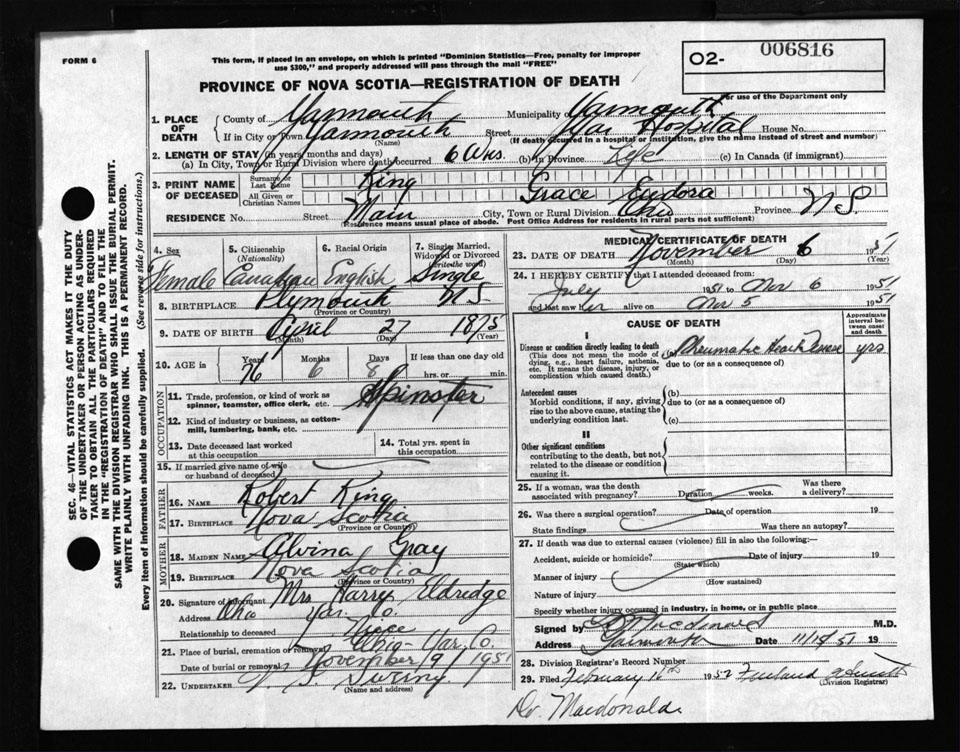 FORM 6
This form, if placed in an envelope, on which is printed "Dominion Statistics—Free, penalty for improper
use $300," and properly addressed will pass through the mail "FREE"
006816
O2-
PROVINCE OF NOVA SCOTIA—REGISTRATION OF DEATH
For use of the Department only
1. PLACE OF DEATH
County of Yarmouth Municipality of Yarmouth
If in City or Town Yarmouth Street Yar Hospital House No.
(Name) (If death occurred in a hospital or institution, give the name instead of street and number)
2. LENGTH OF STAY (in years, months and days)
(a) In City, Town or Rural Division where death occurred 6 Wks. (b) In Province Life (c) In Canada (if immigrant)
3. PRINT NAME OF DECEASED
Surname or Last Name King
All Given or Christian Names Grace Eudora
RESIDENCE House No. Street Main City, Town or Rural Division Ohio Province N.S.
(Residence means usual place of abode. Post Office Address for residents in rural parts not sufficient)
4. Sex Female
5. Citizenship (Nationality) Canadian
6. Racial Origin English
7. Single, Married, Widowed or Divorced (write the word) Single
8. BIRTHPLACE Plymouth N.S.
(Province or Country)
9. DATE OF BIRTH April 27 1875
(Month) (Day) (Year)
10. AGE in Years 76 Months 6 Days 8 If less than one day old hrs. or min.
OCCUPATION
11. Trade, profession, or kind of work as spinner, teamster, office clerk, etc. Spinster
12. Kind of industry or business, as cotton-mill, lumbering, bank, etc.
13. Date deceased last worked at this occupation
14. Total yrs. spent in this occupation
15. If married give name of wife or husband of deceased
FATHER
16. NAME Robert King
17. BIRTHPLACE Nova Scotia
(Province or Country)
MOTHER
18. MAIDEN NAME Alvina Gray
19. BIRTHPLACE Nova Scotia
(Province or Country)
20. Signature of informant Mrs Harry Eldridge
Address Ohio Yar. Co.
Relationship to deceased Niece
21. Place of burial, cremation or removal Ohio - Yar. Co.
Date of burial or removal November 9 1951
22. UNDERTAKER V. S. Sweeny.
(Name and address)
MEDICAL CERTIFICATE OF DEATH
23. DATE OF DEATH November 6 1951
(Month) (Day) (Year)
24. I HEREBY CERTIFY that I attended deceased from
July 1951 to Nov 6 1951
and last saw her alive on Nov 5 1951
CAUSE OF DEATH
Approximate interval between onset and death
I
Disease or condition directly leading to death (a) Rheumatic Heart Disease yrs
(This does not mean the mode of dying, e.g., heart failure, asthenia, etc. It means the disease, injury, or complication which caused death.)
due to (or as a consequence of)
Antecedent causes
Morbid conditions, if any, giving rise to the above cause, stating the underlying condition last.
(b)
due to (or as a consequence of)
(c)
II
Other significant conditions
contributing to the death, but not related to the disease or condition causing it.
25. If a woman, was the death associated with pregnancy? Duration weeks. Was there a delivery?
26. Was there a surgical operation? Date of operation 19
State findings Was there an autopsy?
27. If death was due to external causes (violence) fill in also the following:—
Accident, suicide or homicide? Date of injury 19
(State which)
Manner of injury
(How sustained)
Nature of injury
Specify whether injury occurred in industry, in home, or in public place
Signed by Macdonald M.D.
Address Yarmouth Date 11/15/51 19
28. Division Registrar's Record Number
29. Filed February 16th 1952
(Division Registrar)
Dr. Macdonald.
SEC. 46—VITAL STATISTICS ACT MAKES IT THE DUTY
OF THE UNDERTAKER OR PERSON ACTING AS UNDER-
TAKER TO OBTAIN ALL THE PARTICULARS REQUIRED
IN THE "REGISTRATION OF DEATH" AND TO FILE THE
SAME WITH THE DIVISION REGISTRAR WHO SHALL ISSUE THE BURIAL PERMIT.
WRITE PLAINLY WITH UNFADING INK. THIS IS A PERMANENT RECORD.
Every item of information should be carefully supplied. (See reverse side for instructions.)